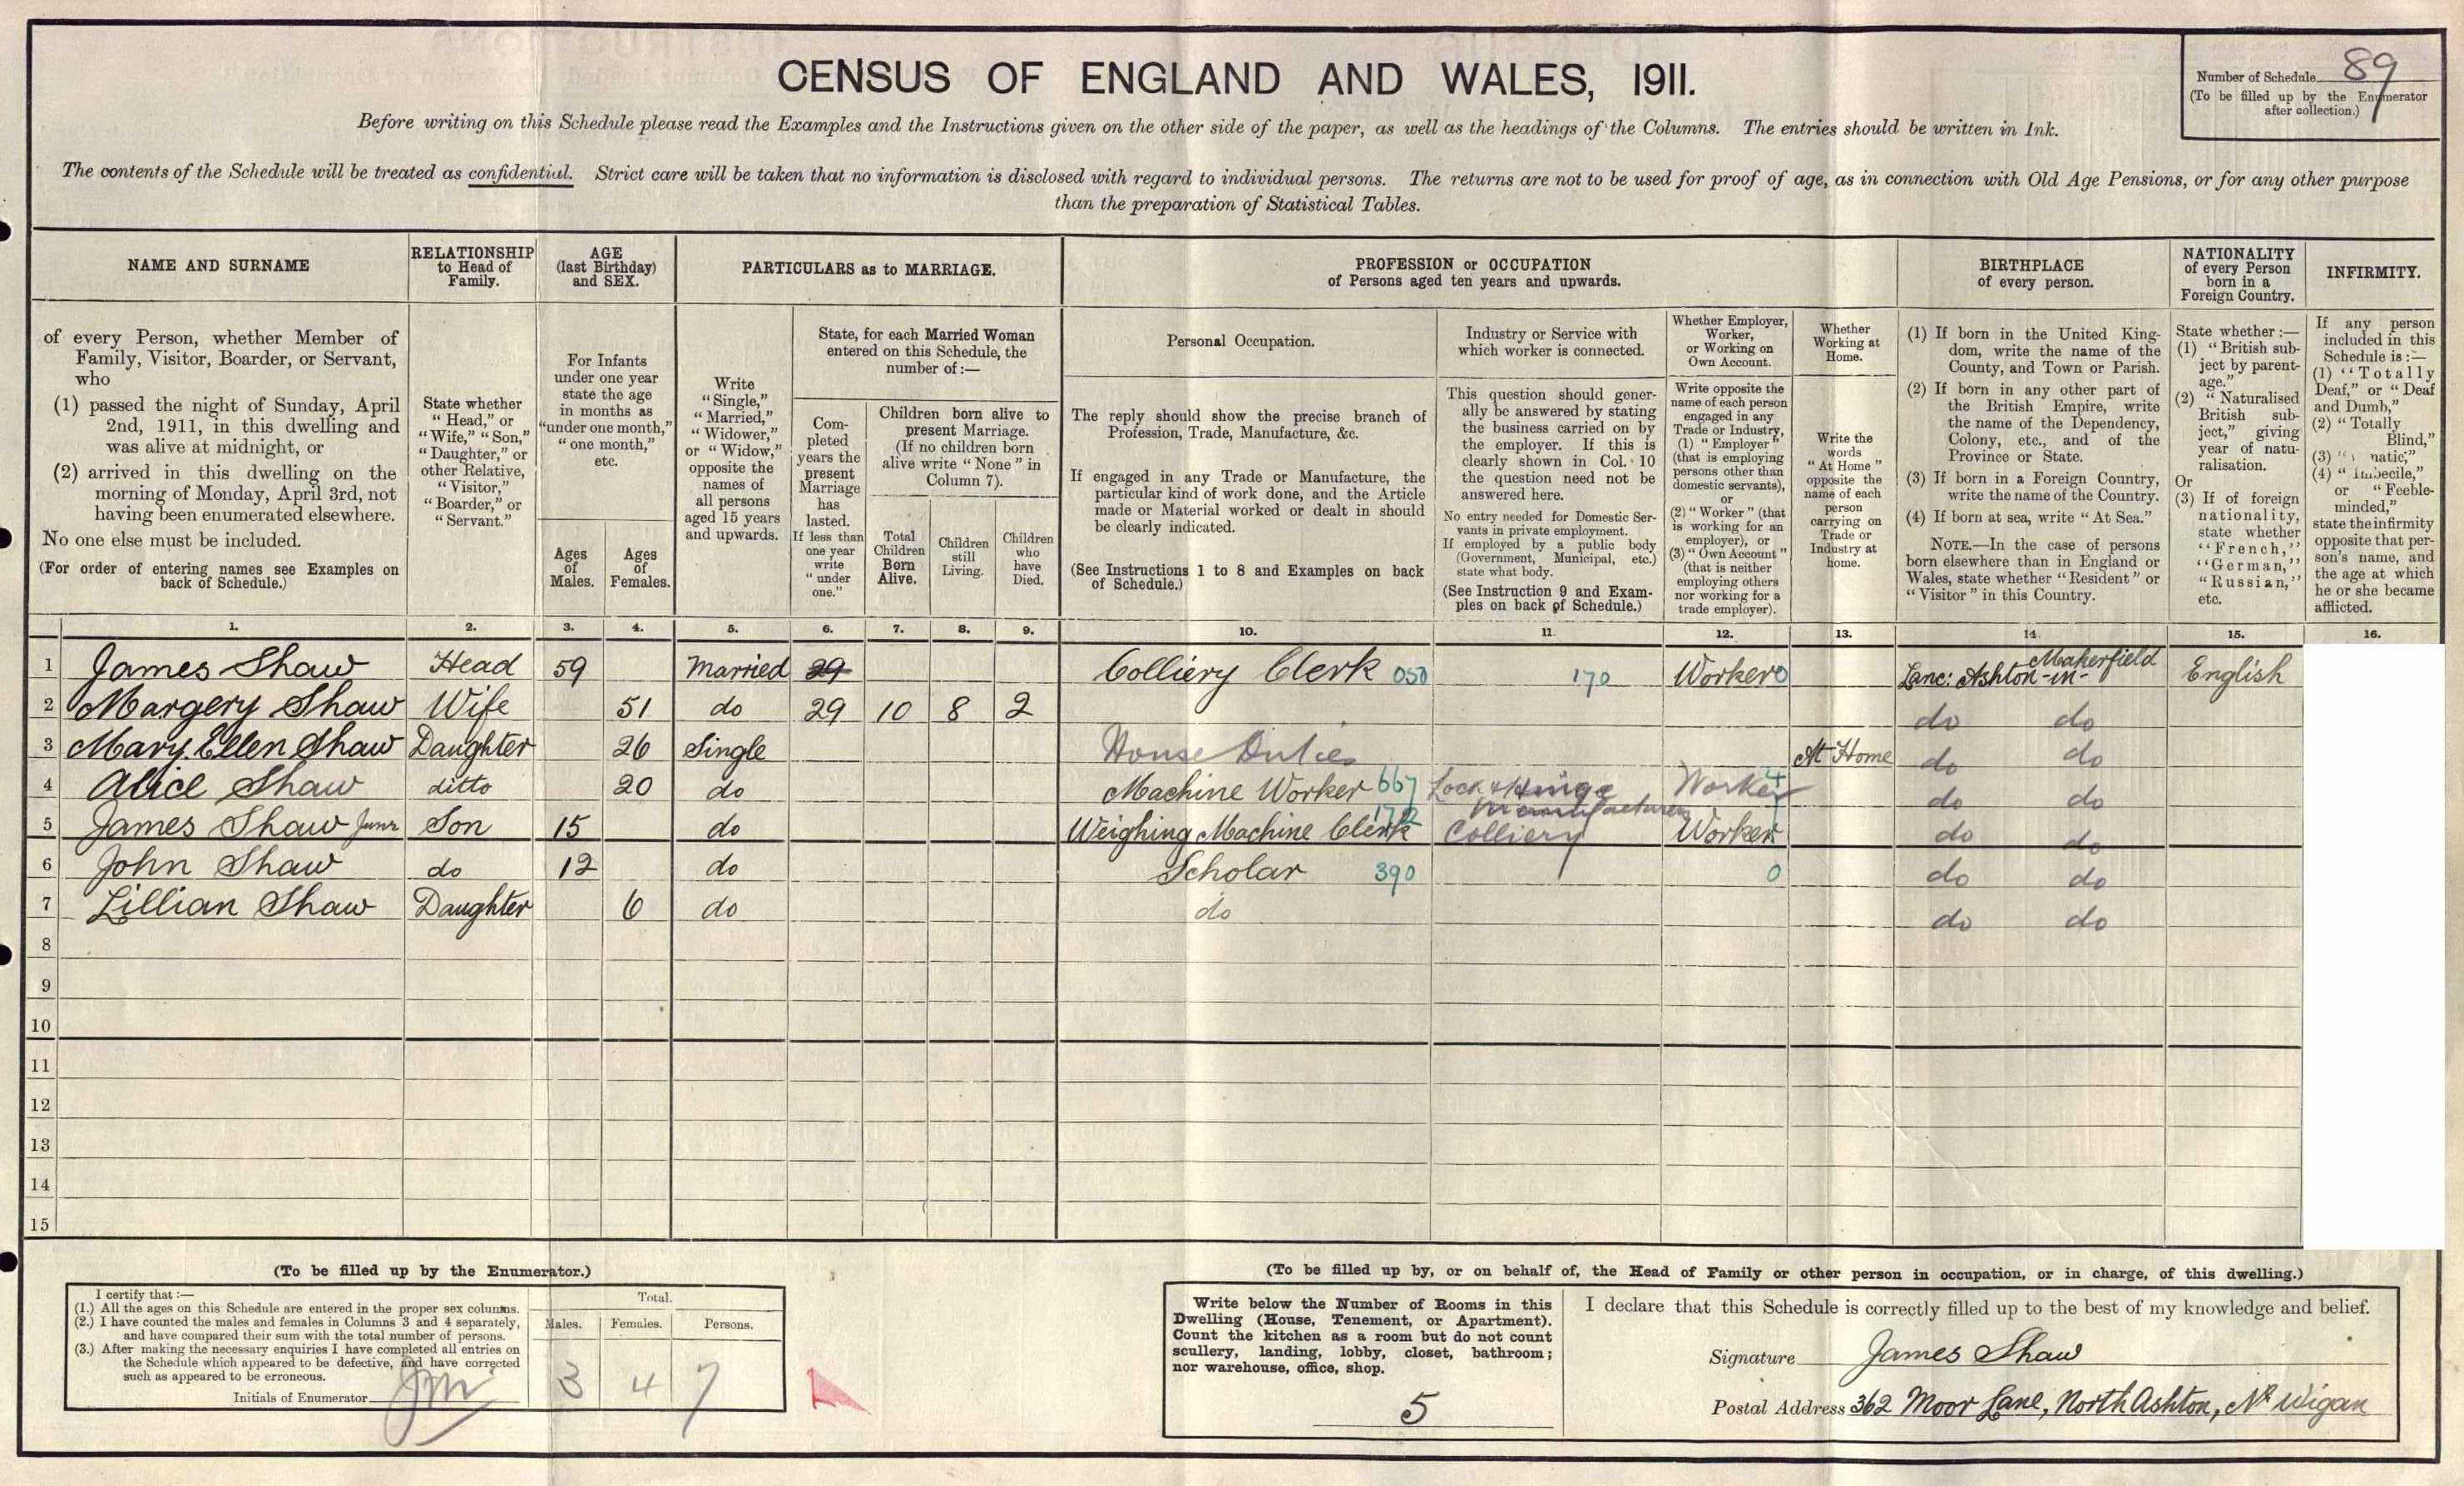 CENSUS OF ENGLAND AND WALES, 1911.
Number of Schedule 89
(To be filled up by the Enumerator
after collection.)
Before writing on this Schedule please read the Examples and the Instructions given on the other side of the paper, as well as the headings of the Columns. The entries should be written in Ink.
The contents of the Schedule will be treated as confidential. Strict care will be taken that no information is disclosed with regard to individual persons. The returns are not to be used for proof of age, as in connection with Old Age Pensions, or for any other purpose
than the preparation of Statistical Tables.
NAME AND SURNAME
of every Person, whether Member of
Family, Visitor, Boarder, or Servant,
who
(1) passed the night of Sunday, April
2nd, 1911, in this dwelling and
was alive at midnight, or
(2) arrived in this dwelling on the
morning of Monday, April 3rd, not
having been enumerated elsewhere.
No one else must be included.
(For order of entering names see Examples on
back of Schedule.)
RELATIONSHIP
to Head of
Family.
State whether
"Head," or
"Wife," "Son,"
"Daughter," or
other Relative,
"Visitor,"
"Boarder," or
"Servant."
AGE
(last Birthday)
and SEX.
For Infants
under one year
state the age
in months as
"under one month,"
"one month,"
etc.
Ages
of
Males.
Ages
of
Females.
PARTICULARS as to MARRIAGE.
Write
"Single,"
"Married,"
"Widower,"
or "Widow,"
opposite the
names of
all persons
aged 15 years
and upwards.
State, for each Married Woman
entered on this Schedule, the
number of:—
Com-
pleted
years the
present
Marriage
has
lasted.
If less than
one year
write
"under
one."
Children born alive to
present Marriage.
(If no children born
alive write "None" in
Column 7).
Total
Children
Born
Alive.
Children
still
Living.
Children
who
have
Died.
PROFESSION or OCCUPATION
of Persons aged ten years and upwards.
Personal Occupation.
The reply should show the precise branch of
Profession, Trade, Manufacture, &c.
If engaged in any Trade or Manufacture, the
particular kind of work done, and the Article
made or Material worked or dealt in should
be clearly indicated.
(See Instructions 1 to 8 and Examples on back
of Schedule.)
Industry or Service with
which worker is connected.
This question should gener-
ally be answered by stating
the business carried on by
the employer. If this is
clearly shown in Col. 10
the question need not be
answered here.
No entry needed for Domestic Ser-
vants in private employment.
If employed by a public body
(Government, Municipal, etc.)
state what body.
(See Instruction 9 and Exam-
ples on back of Schedule.)
Whether Employer,
Worker,
or Working on
Own Account.
Write opposite the
name of each person
engaged in any
Trade or Industry,
(1) "Employer"
(that is employing
persons other than
domestic servants),
or
(2) "Worker" (that
is working for an
employer), or
(3) "Own Account"
(that is neither
employing others
nor working for a
trade employer).
Whether
Working at
Home.
Write the
words
"At Home"
opposite the
name of each
person
carrying on
Trade or
Industry at
home.
BIRTHPLACE
of every person.
(1) If born in the United King-
dom, write the name of the
County, and Town or Parish.
(2) If born in any other part of
the British Empire, write
the name of the Dependency,
Colony, etc., and of the
Province or State.
(3) If born in a Foreign Country,
write the name of the Country.
(4) If born at sea, write "At Sea."
NOTE.—In the case of persons
born elsewhere than in England or
Wales, state whether "Resident" or
"Visitor" in this Country.
NATIONALITY
of every Person
born in a
Foreign Country.
State whether:—
(1) "British sub-
ject by parent-
age."
(2) "Naturalised
British sub-
ject," giving
year of natu-
ralisation.
Or
(3) If of foreign
nationality,
state whether
"French,"
"German,"
"Russian,"
etc.
INFIRMITY.
If any person
included in this
Schedule is:—
(1) "Totally
Deaf," or "Deaf
and Dumb,"
(2) "Totally
Blind,"
(3) natic,"
(4) "Imbecile,"
or "Feeble-
minded,"
state the infirmity
opposite that per-
son's name, and
the age at which
he or she became
afflicted.
1. 2. 3. 4. 5. 6. 7. 8. 9. 10. 11. 12. 13. 14. 15. 16.
1 James Shaw Head 59 Married 29 Colliery Clerk 050 170 Worker 0 Lanc: Ashton-in-Makerfield English
2 Margery Shaw Wife 51 do 29 10 8 2 do do
3 Mary Ellen Shaw Daughter 26 Single House Duties At Home do do
4 Alice Shaw ditto 20 do Machine Worker 667 Lock & Hinge Manufacturer Worker 4 do do
5 James Shaw Junr Son 15 do Weighing Machine Clerk 172 Colliery Worker do do
6 John Shaw do 12 do Scholar 390 0 do do
7 Lillian Shaw Daughter 6 do do do do
8
9
10
11
12
13
14
15
(To be filled up by the Enumerator.)
I certify that:—
(1.) All the ages on this Schedule are entered in the proper sex columns.
(2.) I have counted the males and females in Columns 3 and 4 separately,
and have compared their sum with the total number of persons.
(3.) After making the necessary enquiries I have completed all entries on
the Schedule which appeared to be defective, and have corrected
such as appeared to be erroneous.
Initials of Enumerator
Total.
Males. Females. Persons.
3 4 7
(To be filled up by, or on behalf of, the Head of Family or other person in occupation, or in charge, of this dwelling.)
Write below the Number of Rooms in this
Dwelling (House, Tenement, or Apartment).
Count the kitchen as a room but do not count
scullery, landing, lobby, closet, bathroom;
nor warehouse, office, shop.
5
I declare that this Schedule is correctly filled up to the best of my knowledge and belief.
Signature James Shaw
Postal Address 362 Moor Lane, North Ashton, Nr Wigan